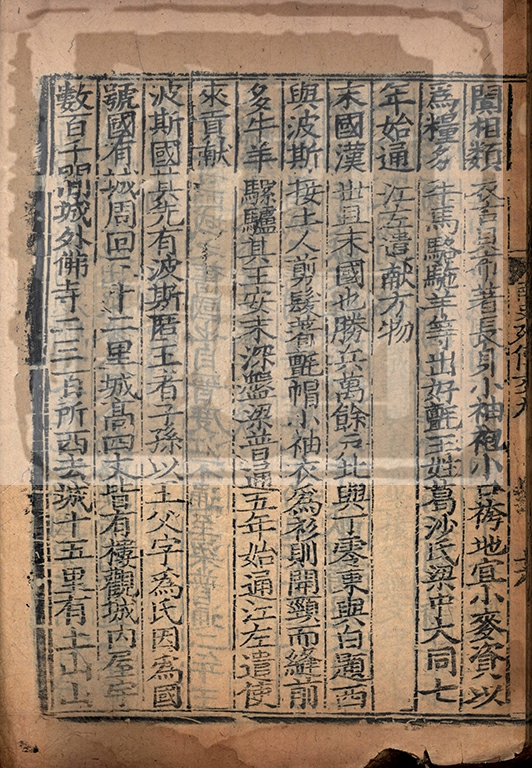 闐相類衣古貝布著長身小袖袍小口袴地宜小麥資以
爲糧多牛馬駱駞羊等出好氈王姓葛沙氏梁中大同七
年始通江左遣獻方物
末國漢世且末國也勝兵萬餘戶北與丁零東與白題西
與波斯接土人剪髮著氈帽小袖衣爲衫則開頸而縫前
多牛羊騾驢其王安末深盤梁普通五年始通江左遣使
來貢獻
波斯國其先有波斯匿王者子孫以王父字爲氏因爲國
號國有城周回三十二里城高四丈皆有樓觀城內屋宇
數百千間城外佛寺二三百所西去城十五里有土山山